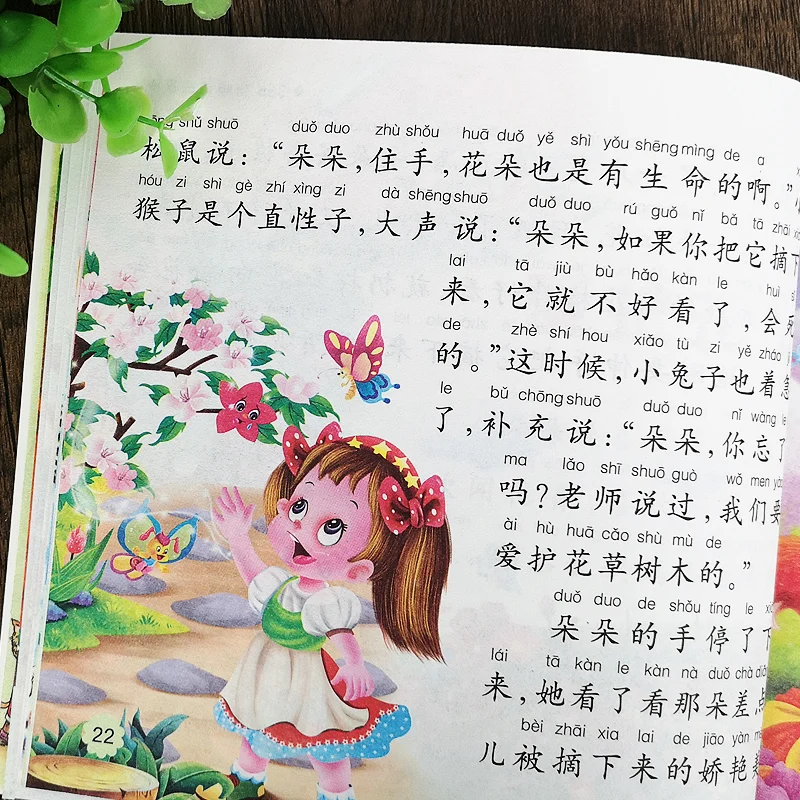 shǔ shuō duǒ duo zhù shǒu huā duǒ yě shì yǒu shēng mìng de a
松鼠说：“朵朵，住手，花朵也是有生命的啊。”
hóu zi shì gè zhí xìng zi dà shēng shuō duǒ duo rú guǒ nǐ bǎ tā zhāi
猴子是个直性子，大声说：“朵朵，如果你把它摘下
lai tā jiù bù hǎo kàn le huì
来，它就不好看了，会死
de zhè shí hou xiǎo tù zi yě zháo
的。”这时候，小兔子也着急
le bǔ chōng shuō duǒ duo nǐ wàng le
了，补充说：“朵朵，你忘了
ma lǎo shī shuō guò wǒ men yào
吗？老师说过，我们要
ài hù huā cǎo shù mù de
爱护花草树木的。”
duǒ duo de shǒu tíng le
朵朵的手停了下
lái tā kàn le kàn nà duǒ chà diǎn
来，她看了看那朵差点
bèi zhāi xia lai de jiāo yàn
儿被摘下来的娇艳
22